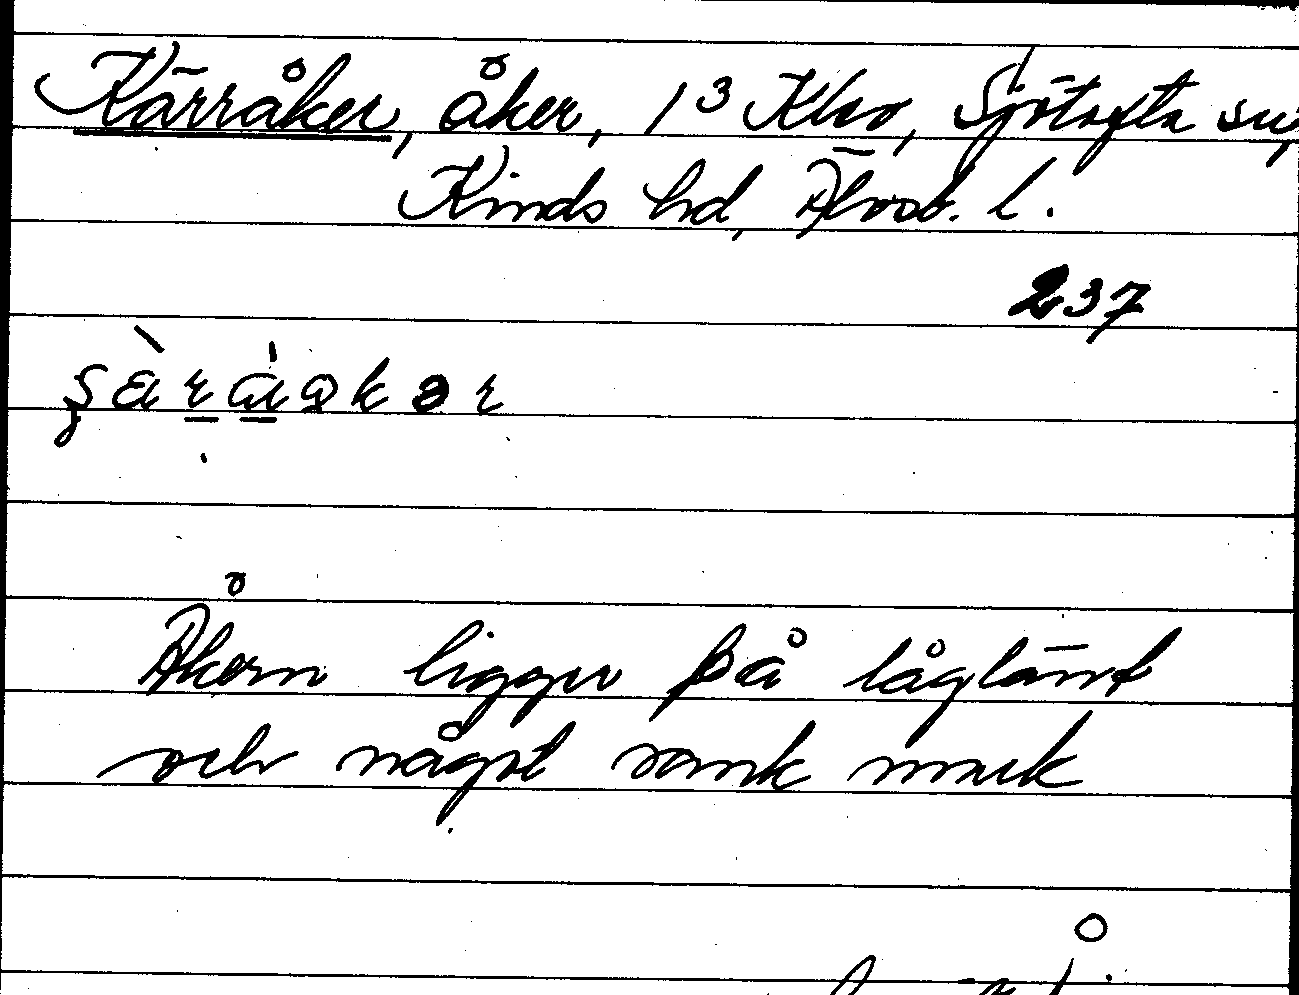 Kärråker, åker, 1³ Klev, Sjötofta sn,
Kinds hd, Älvsb. l.
237
Åkern ligger på låglänt
och något sank mark